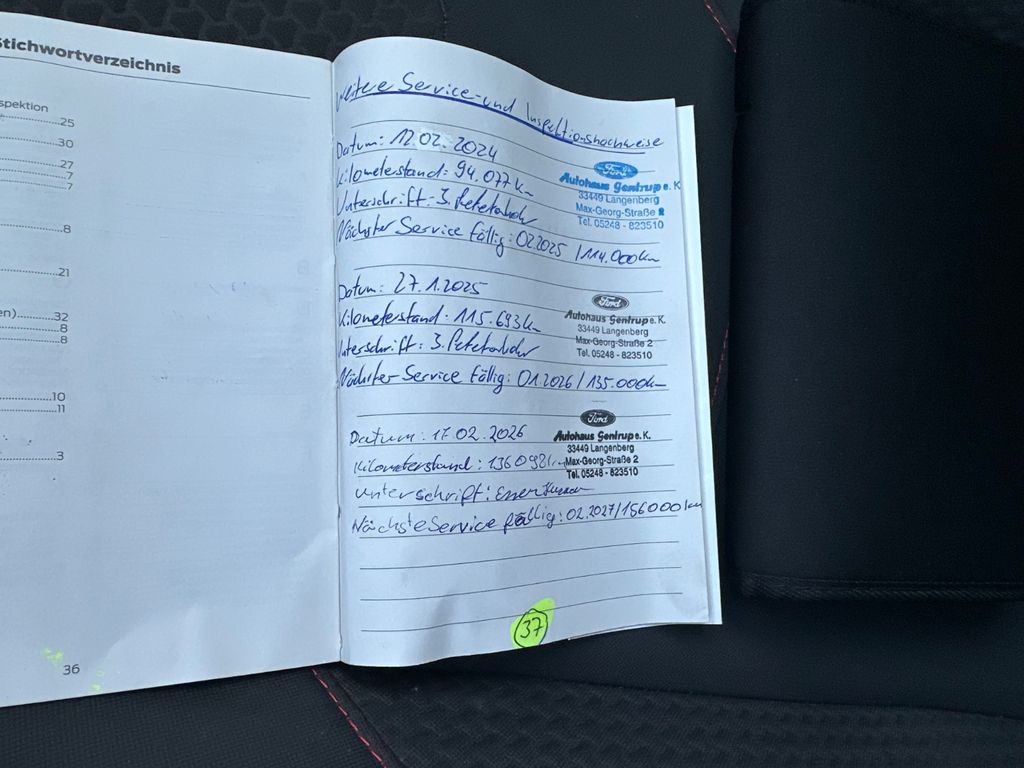 Stichwortverzeichnis
spektion
25
30
27
7
7
8
21
en) 32
8
8
10
11
3
36
Weitere Service- und Inspektionsnachweise
Datum: 12.02.2024
Kilometerstand: 94.077 km
Unterschrift: J.
Nächster Service fällig: 02.2025 / 114.000km
Ford
Autohaus Gentrup e. K
33449 Langenberg
Max-Georg-Straße 2
Tel. 05248 - 823510
Datum: 27.1.2025
Kilometerstand: 115.693 km
Unterschrift: J.
Nächster Service fällig: 01.2026 / 135.000km
Ford
Autohaus Gentrup e. K.
33449 Langenberg
Max-Georg-Straße 2
Tel. 05248 - 823510
Datum: 17.02.2026
Kilometerstand: 136098km
Unterschrift:
Nächste Service fällig: 02.2027/156000km
Ford
Autohaus Gentrup e. K.
33449 Langenberg
Max-Georg-Straße 2
Tel. 05248 - 823510
37